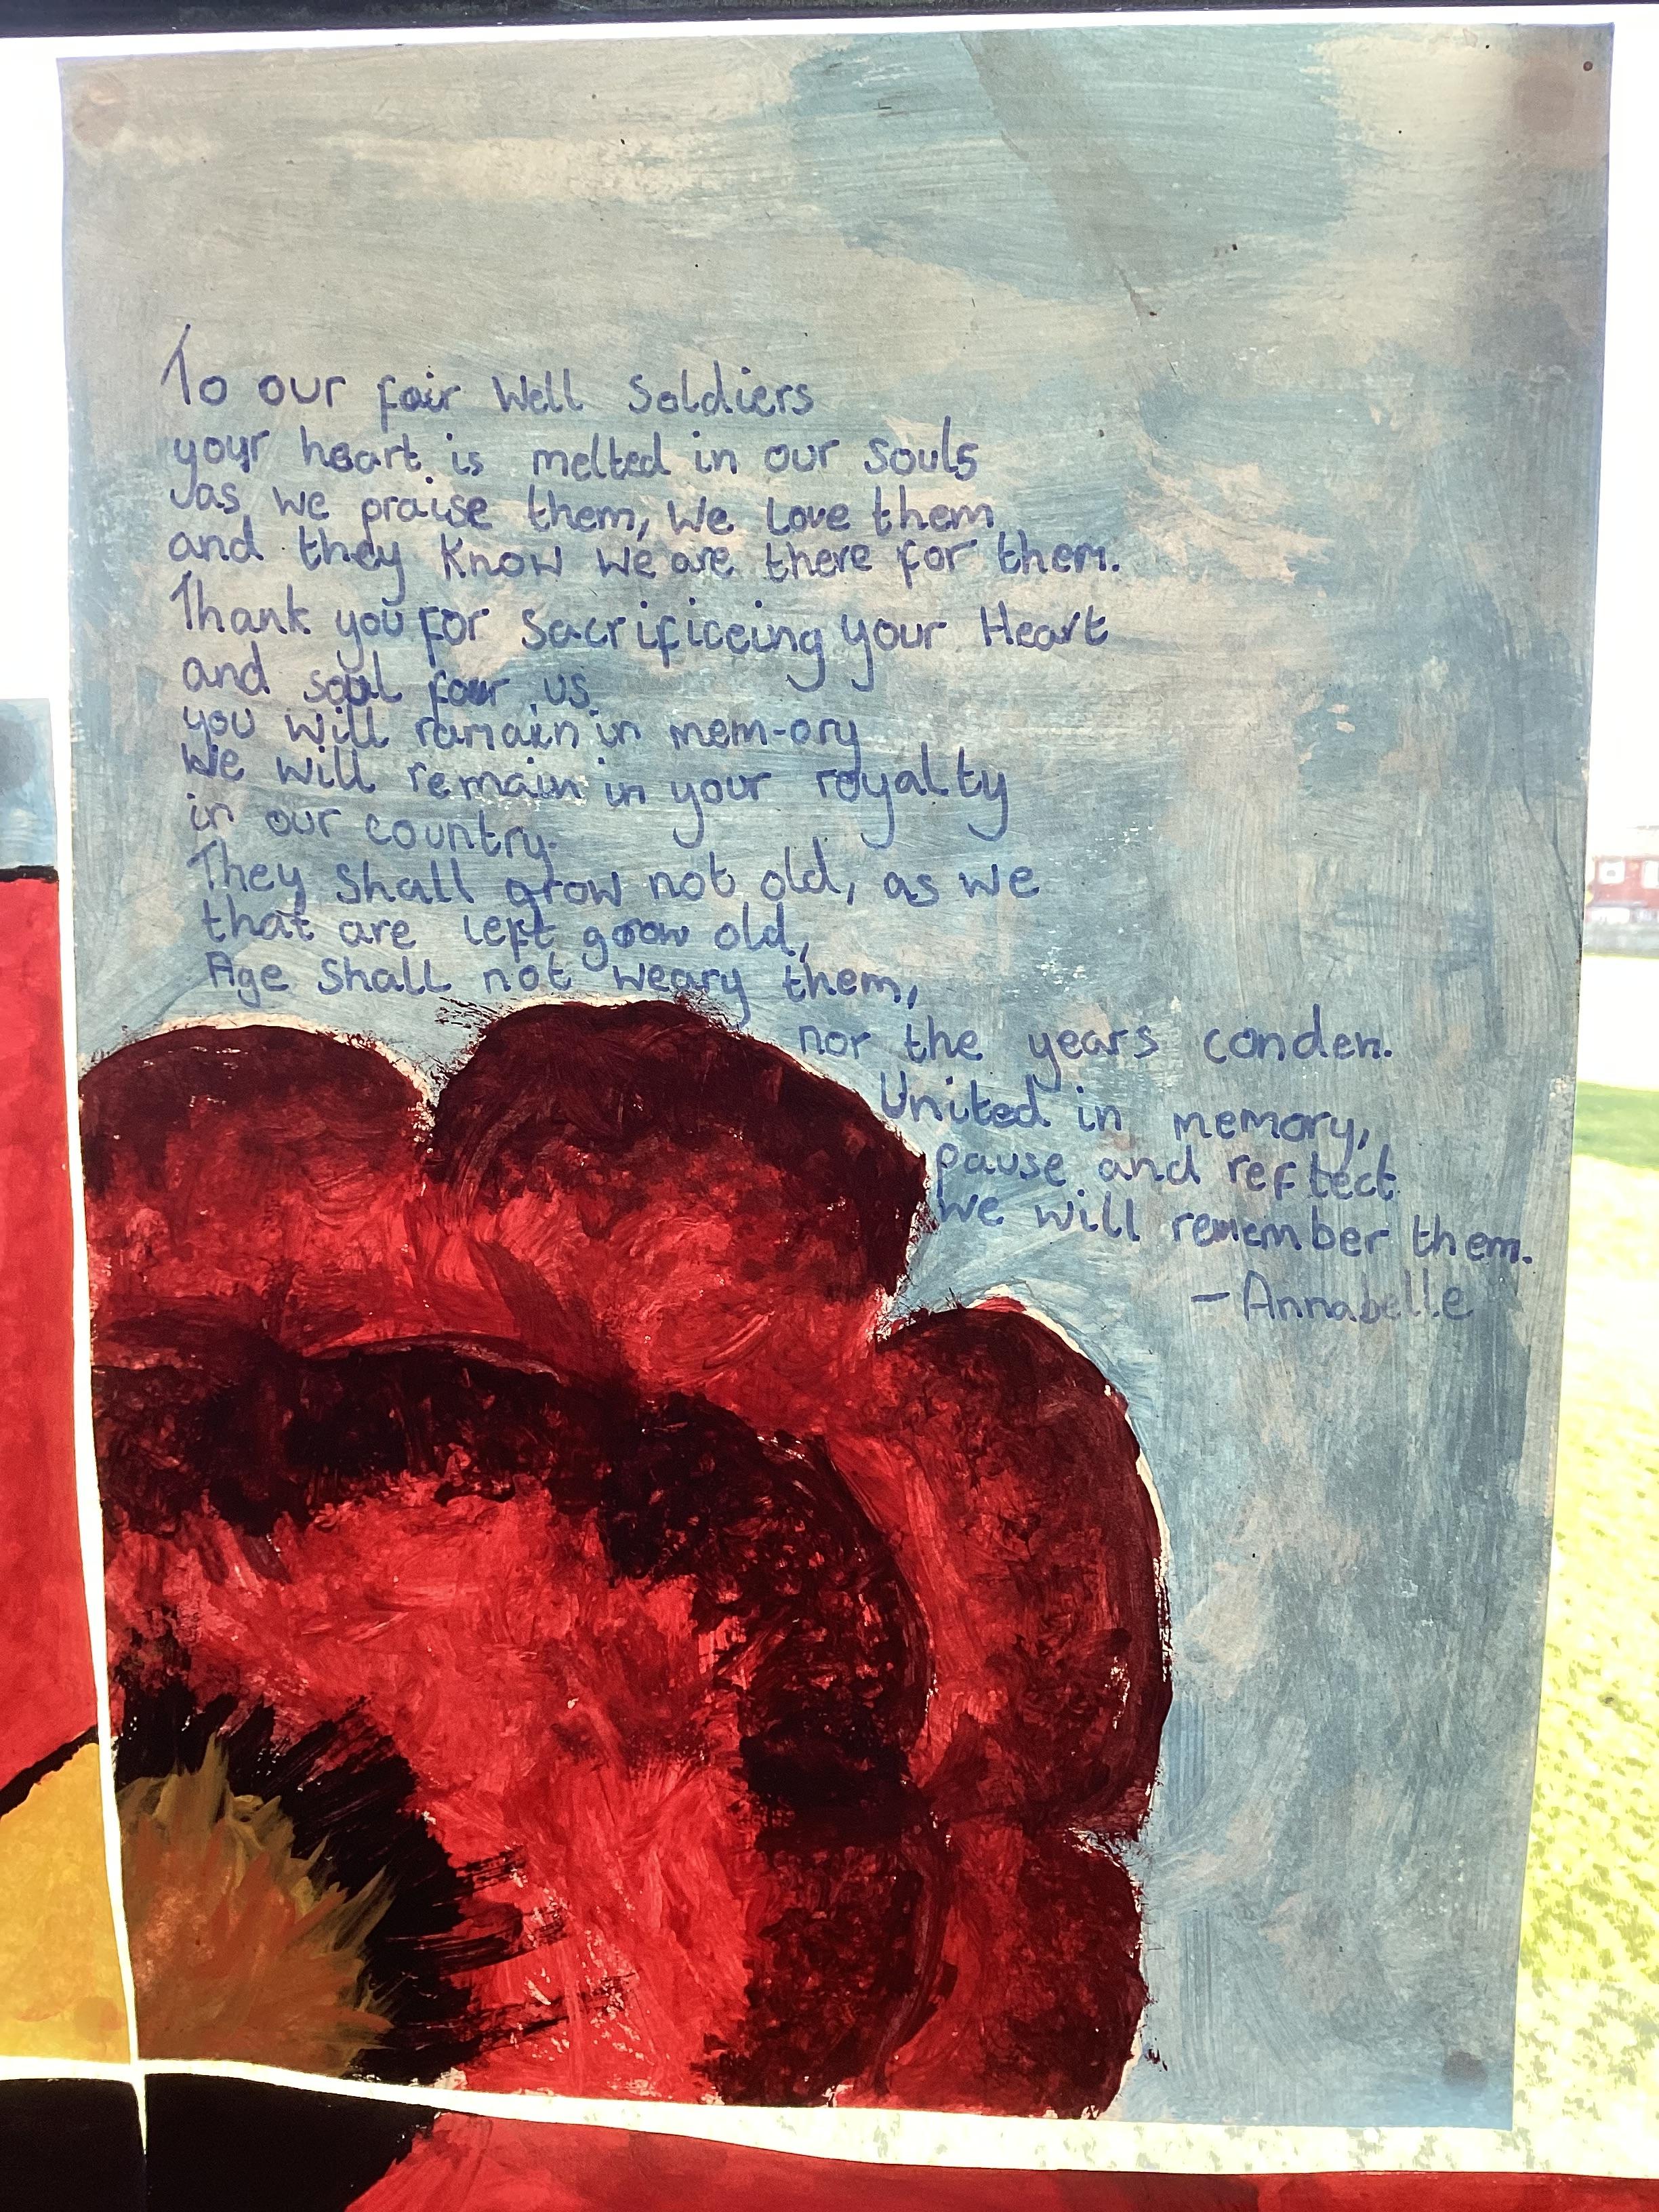 To our fair well soldiers
your heart is melted in our souls
as we praise them, we love them
and they know we are there for them.
Thank you for sacrificeing your Heart
and soul four us
you will remain in mem-ory
We will remain in your royalty
in our country.
They shall grow not old, as we
that are left grow old,
Age shall not weary them,
nor the years conden.
United in memory,
pause and reflect
we will remember them.
- Annabelle